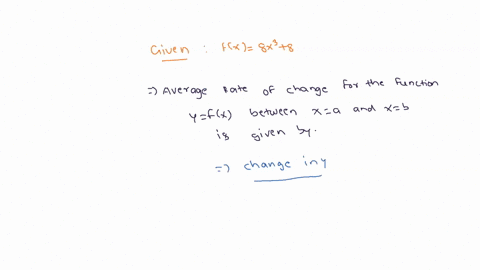 Given : f(x) = 8x³+8
=> Average Rate of change for the function
y=f(x) between x=a and x=b
is given by.
=> change in y